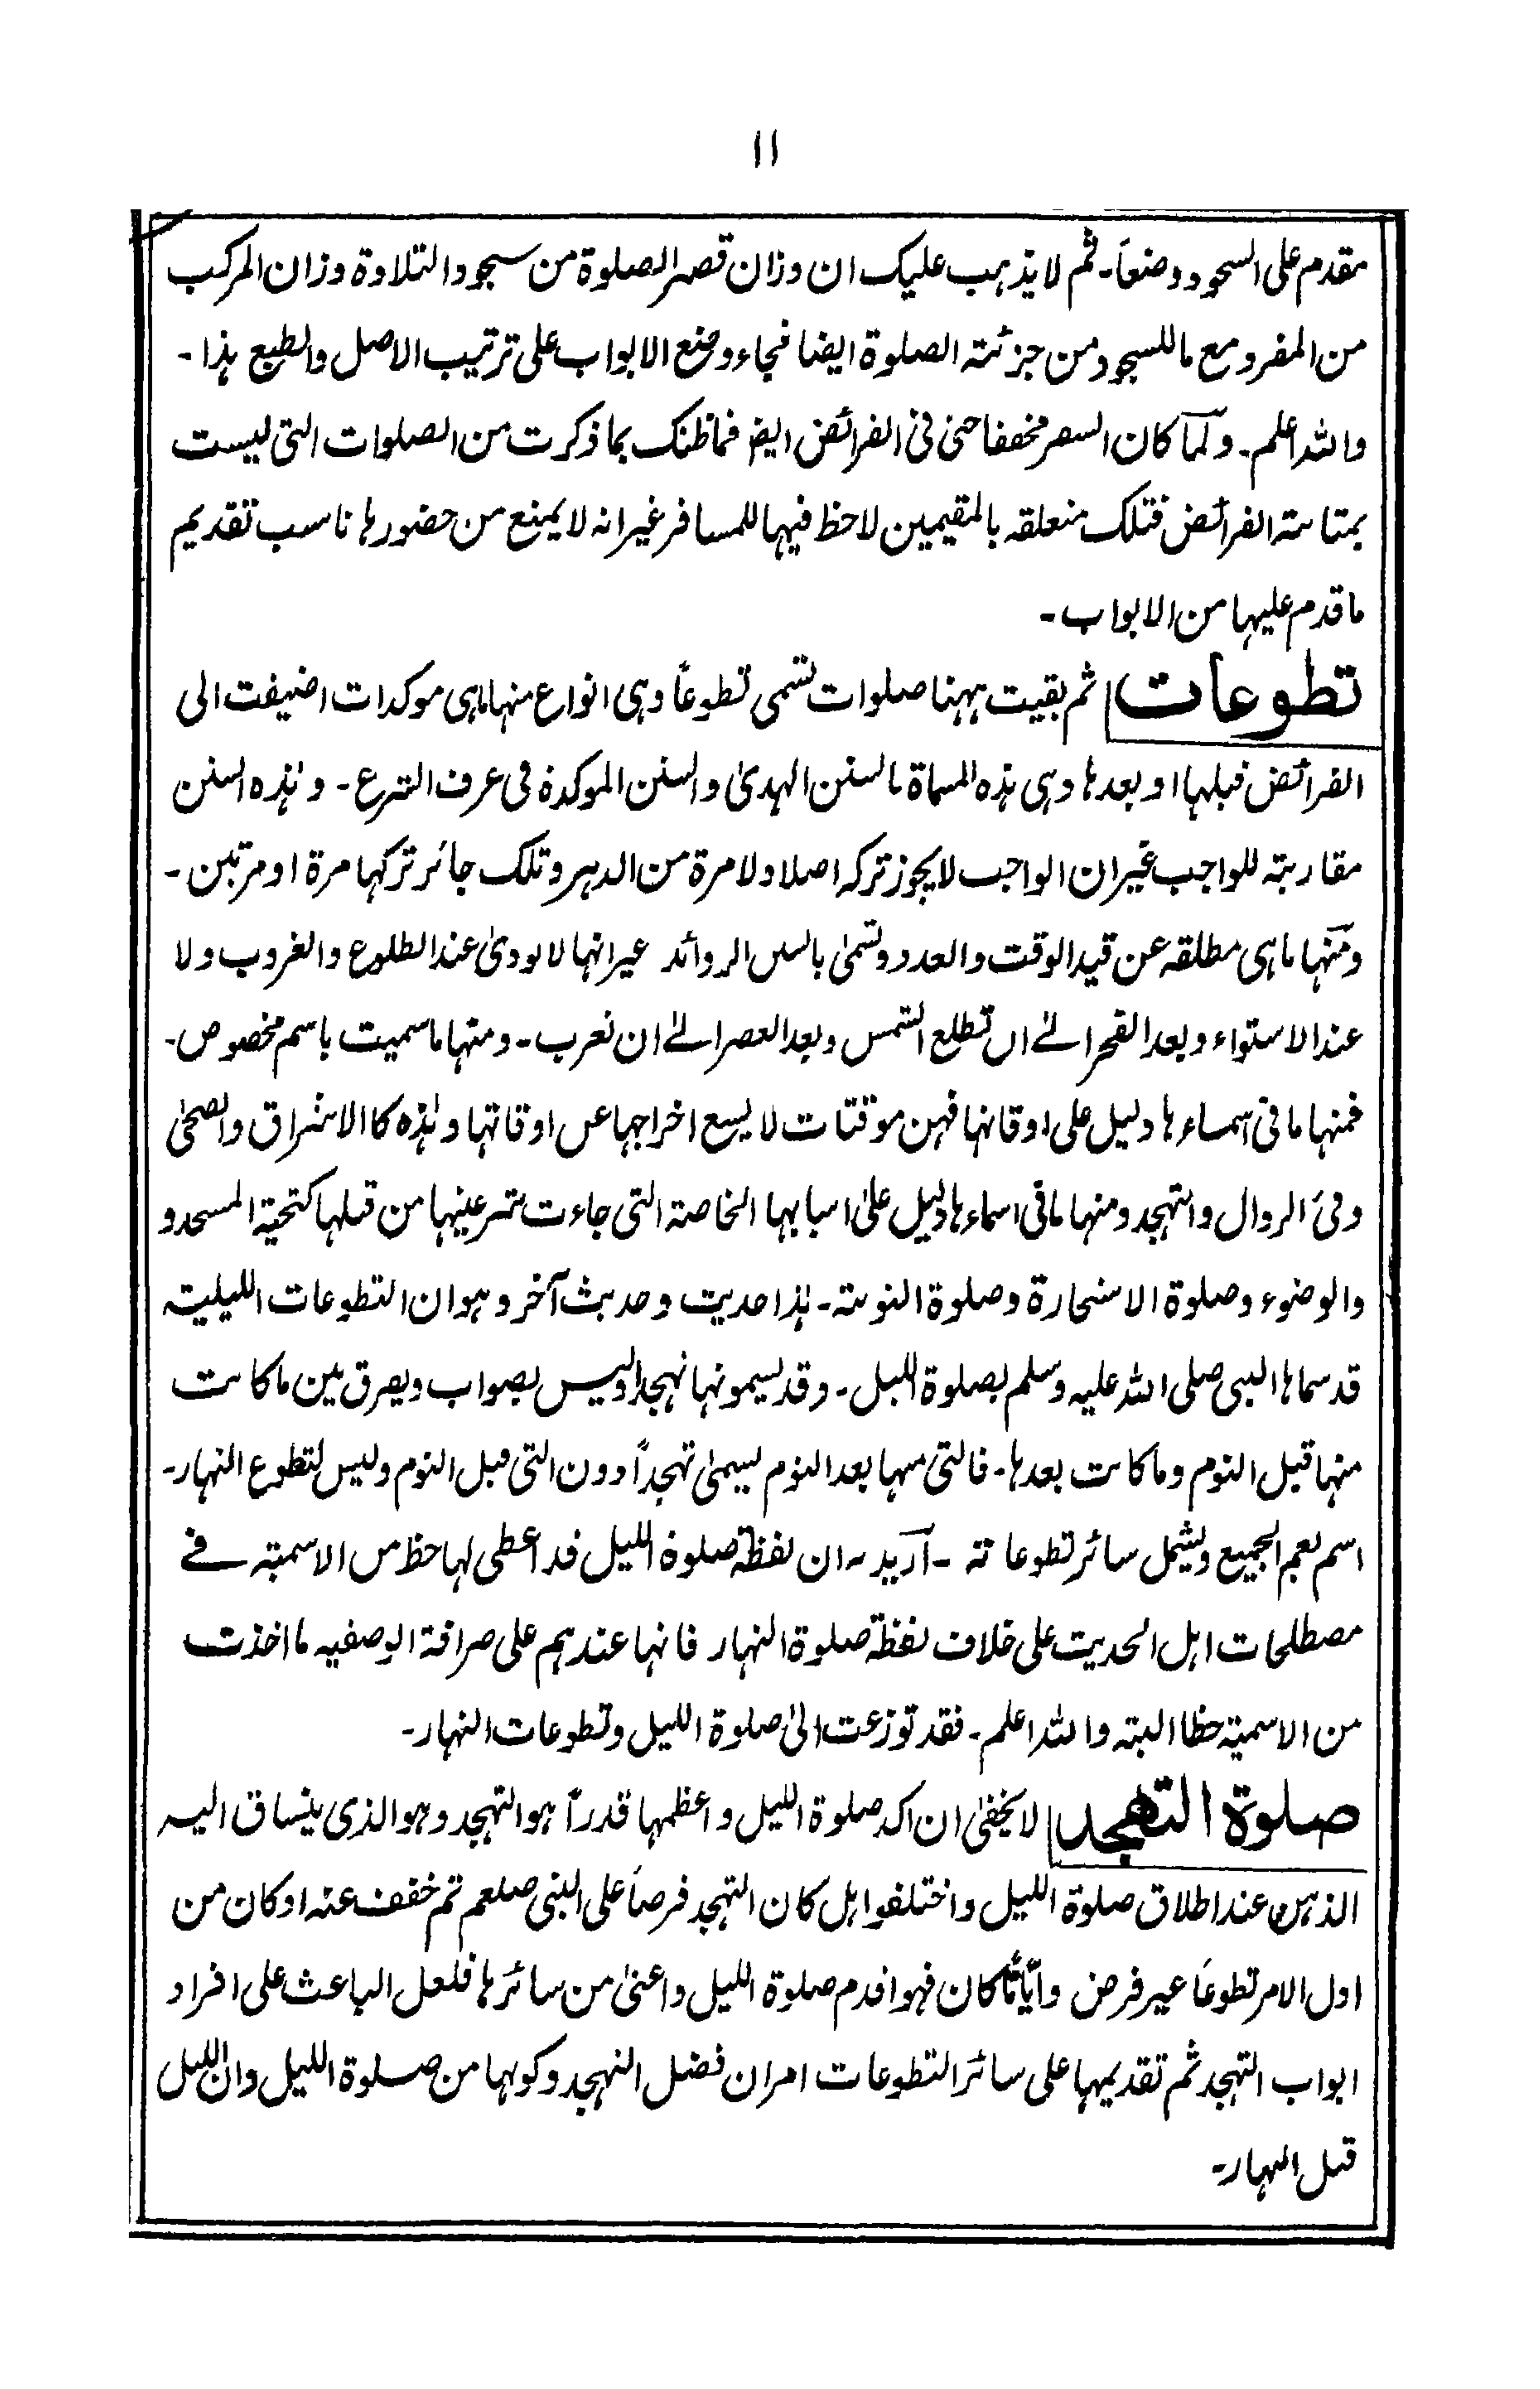 ۱۱
مقدم على السجود وضعاً۔ ثم لا يذهب عليك ان وزان قصر الصلوة من سجود التلاوة وزان المركب
من المفرد مع ما للسجود من جزئتہ الصلوة ايضا فجاء وضع الابواب على ترتيب الاصل والطبع ہذا۔
واللہ اعلم۔ ولما كان السفر مخففا حتى فی الفرائض ايضا فما ظنك بما ذكرت من الصلوات التی ليست
بمتابتہ الفرائض فتلك متعلقہ بالمقيمين لاحظ فيہا للمسافر غير انہ لا يمنع من حضورہا ناسب تقديم
ما قدم عليہا من الابواب۔
تطوعات ثم بقيت ہہنا صلوات تسمى تطوعاً وہی انواع منہا ماہی موكدات اضيفت الى
الفرائض قبلہا او بعدہا وہی ہذہ المسماة بالسنن الہدیٰ والسنن الموكدة فی عرف الشرع۔ وہٰذہ السنن
مقاربتہ للواجب غير ان الواجب لا يجوز تركہ اصلا ولا مرة من الدہر وتلك جائز تركہا مرة او مرتين۔
ومنہا ماہی مطلقہ عن قيد الوقت والعدد وتسمیٰ بالسنن الزوائد غير انہا لا تودیٰ عند الطلوع والغروب ولا
عند الاستواء وبعد الفجر الےٰ ان تطلع الشمس وبعد العصر الےٰ ان تغرب۔ ومنہا ما سميت باسم مخصوص۔
فمنہا ما فی اسماءہا دليل على اوقاتہا فہن موقتات لا يسع اخراجہا عن اوقاتہا وہٰذہ كالاشراق والضحیٰ
وفئ الزوال والتہجد ومنہا ما فی اسماءہا دليل علیٰ اسبابہا الخاصتہ التی جاءت شرعيتہا من قبلہا كتحية المسجد و
والوضوء وصلوة الاستخارة وصلوة التوبتہ۔ ہٰذا حديث وحديث آخر وہو ان التطوعات الليليتہ
قد سماہا النبی صلى اللہ عليہ وسلم بصلوة الليل۔ وقد يسمونہا تہجدا وليس بصواب ويفرق بين ما كانت
منہا قبل النوم وما كانت بعدہا۔ فالتی منہا بعد النوم يسمیٰ تہجداً دون التی قبل النوم وليس لتطوع النہار۔
اسم يعم الجميع ويشمل سائر تطوعاتہ۔ اريد بہ ان لفظة صلوة الليل قد اعطی لہا حظ من الاسمية فے
مصطلحات اہل الحديث على خلاف لفظة صلوة النہار فانہا عندہم على صرافة الوصفيہ ما اخذت
من الاسمية حظا البتہ واللہ اعلم۔ فقد توزعت الیٰ صلوة الليل وتطوعات النہار۔
صلوة التهجد لا يخفیٰ ان اكد صلوة الليل واعظمہا قدراً ہو التہجد وہو الذی ينساق اليہ
الذہن عند اطلاق صلوة الليل واختلفوا ہل كان التہجد فرضاً على النبی صلعم ثم خفف عنہ او كان من
اول الامر تطوعاً غير فرض واياً ما كان فہو اقدم صلوة الليل واعنیٰ من سائرہا فلعل الباعث على افراد
ابواب التہجد ثم تقديمہا على سائر التطوعات امران فضل التہجد وكونہا من صلوة الليل وان الليل
قبل النہار۔